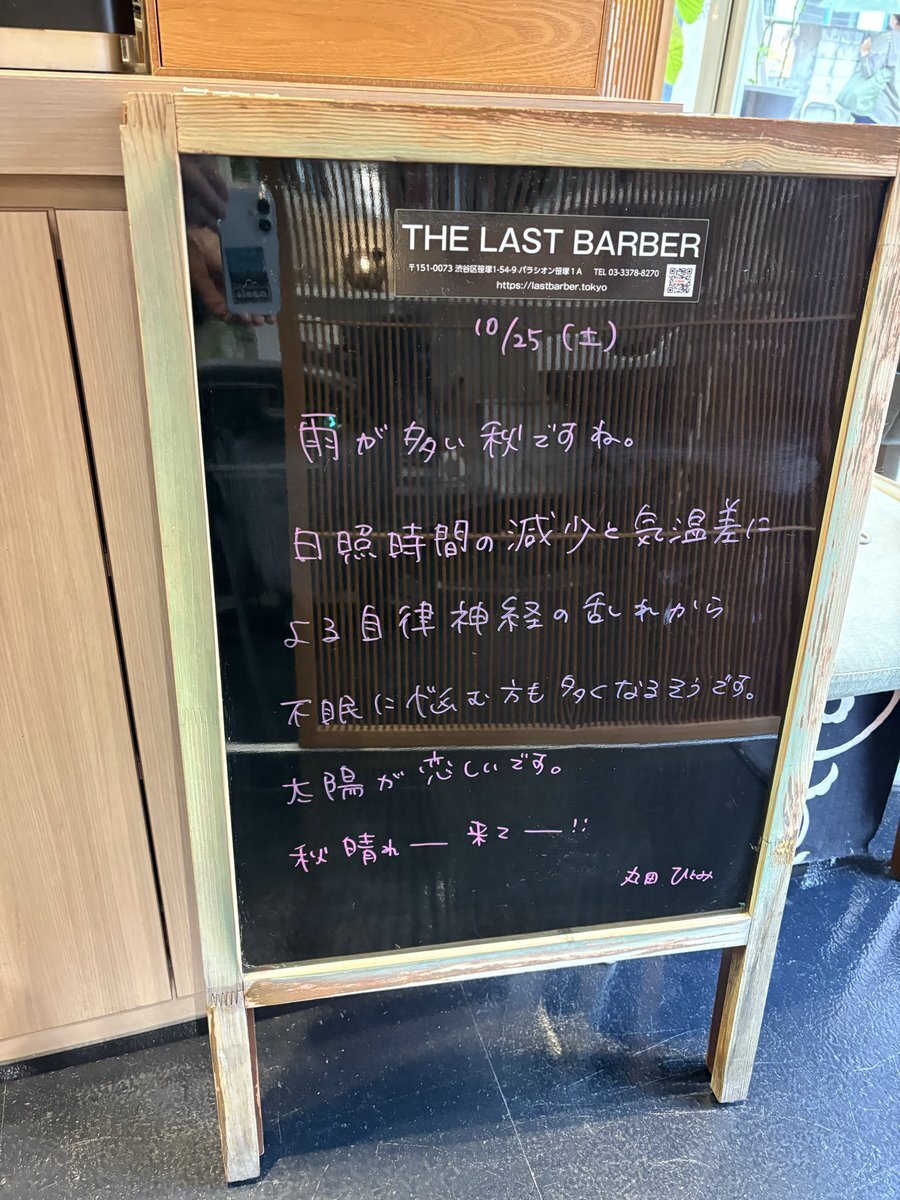 THE LAST BARBER
〒151-0073 渋谷区笹塚1-54-9 パラシオン笹塚1A TEL 03-3378-8270
https://lastbarber.tokyo
10/25 (土)
雨が多い秋ですね。
日照時間の減少と気温差に
よる自律神経の乱れから
不眠に悩む方も多くなるそうです。
太陽が恋しいです。
秋晴れー来てー!!
丸田 ひとみ